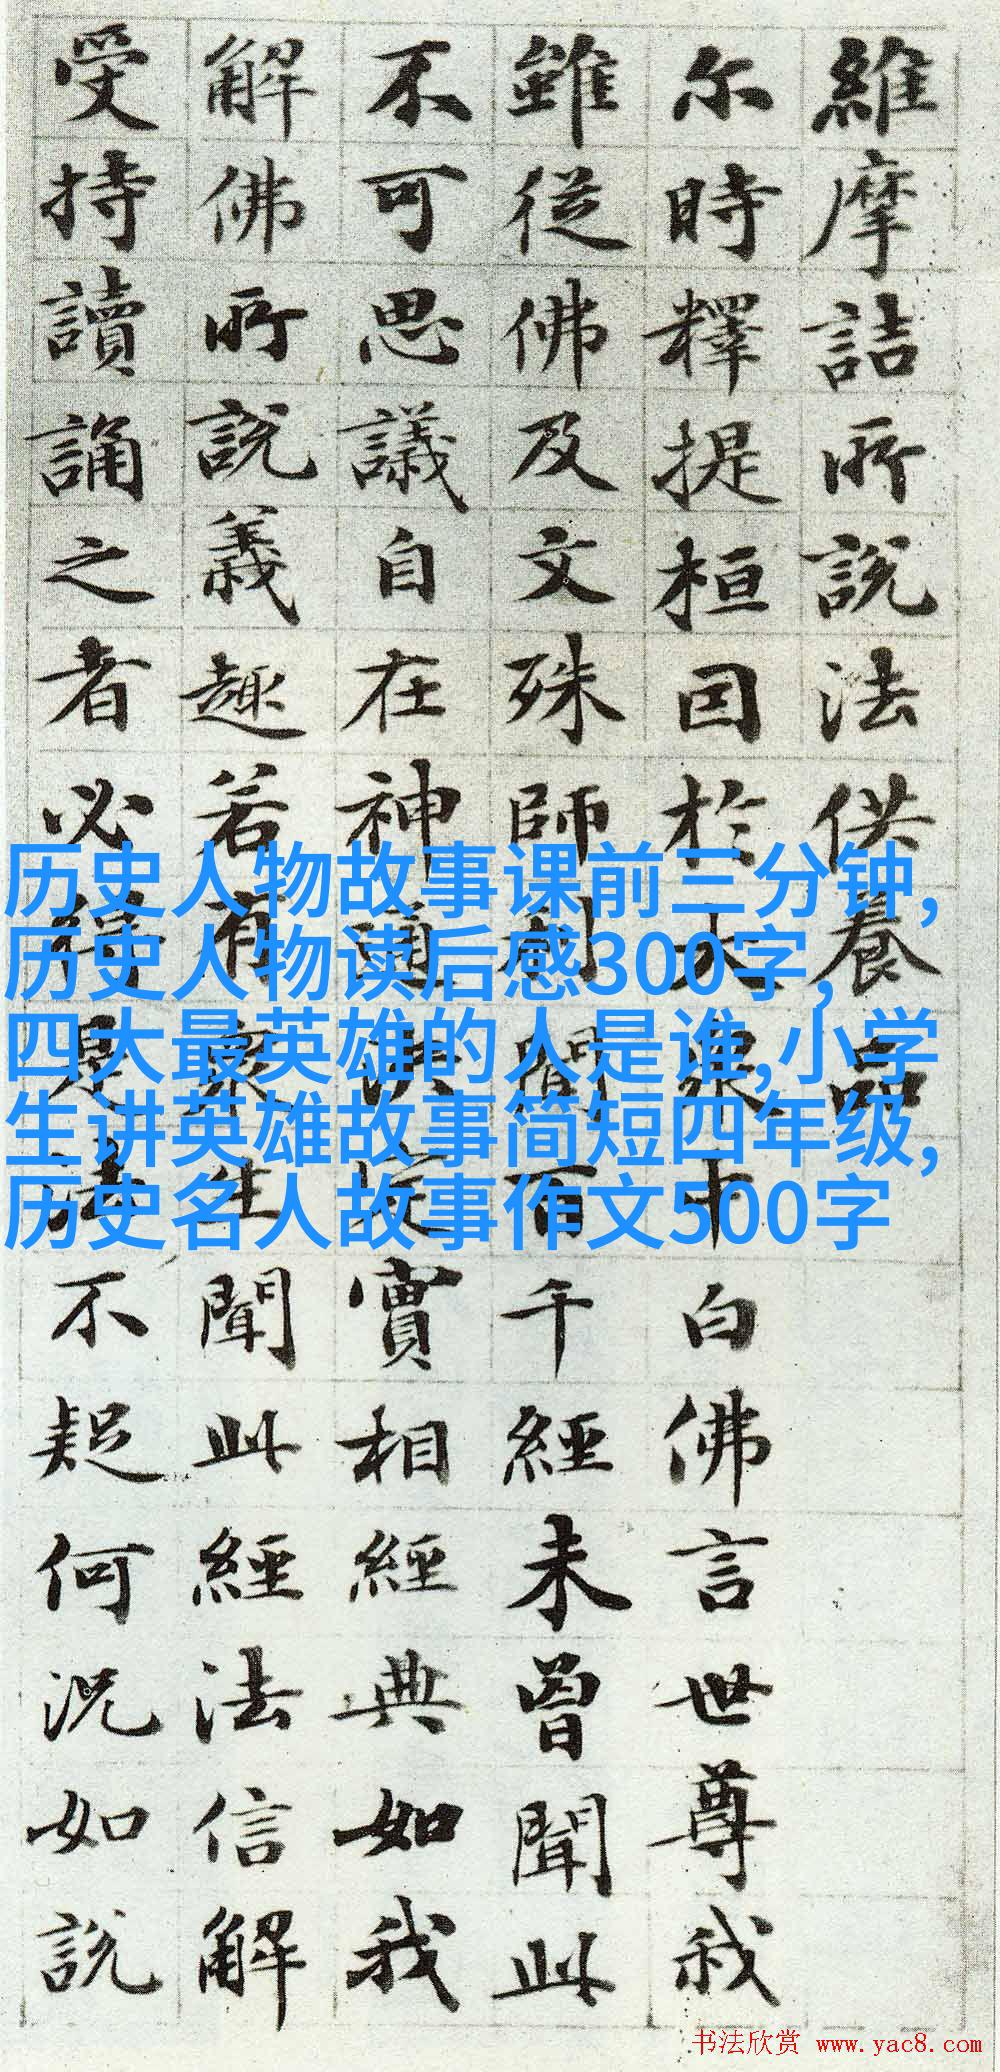 維摩詰所說法供養品
尓時釋提桓因於大衆中白佛言世尊我
雖從佛及文殊師利聞百千經未曾聞此
不可思議自在神通決定實相經典如我
解佛所說義趣若有衆生聞此經法信解
受持讀誦之者必得是法不疑何況如說
历史人物故事课前三分钟,
历史人物读后感300字，
四大最英雄的人是谁,小学
生讲英雄故事简短四年级,
历史名人故事作文500字
书法欣赏 www.yac8.com